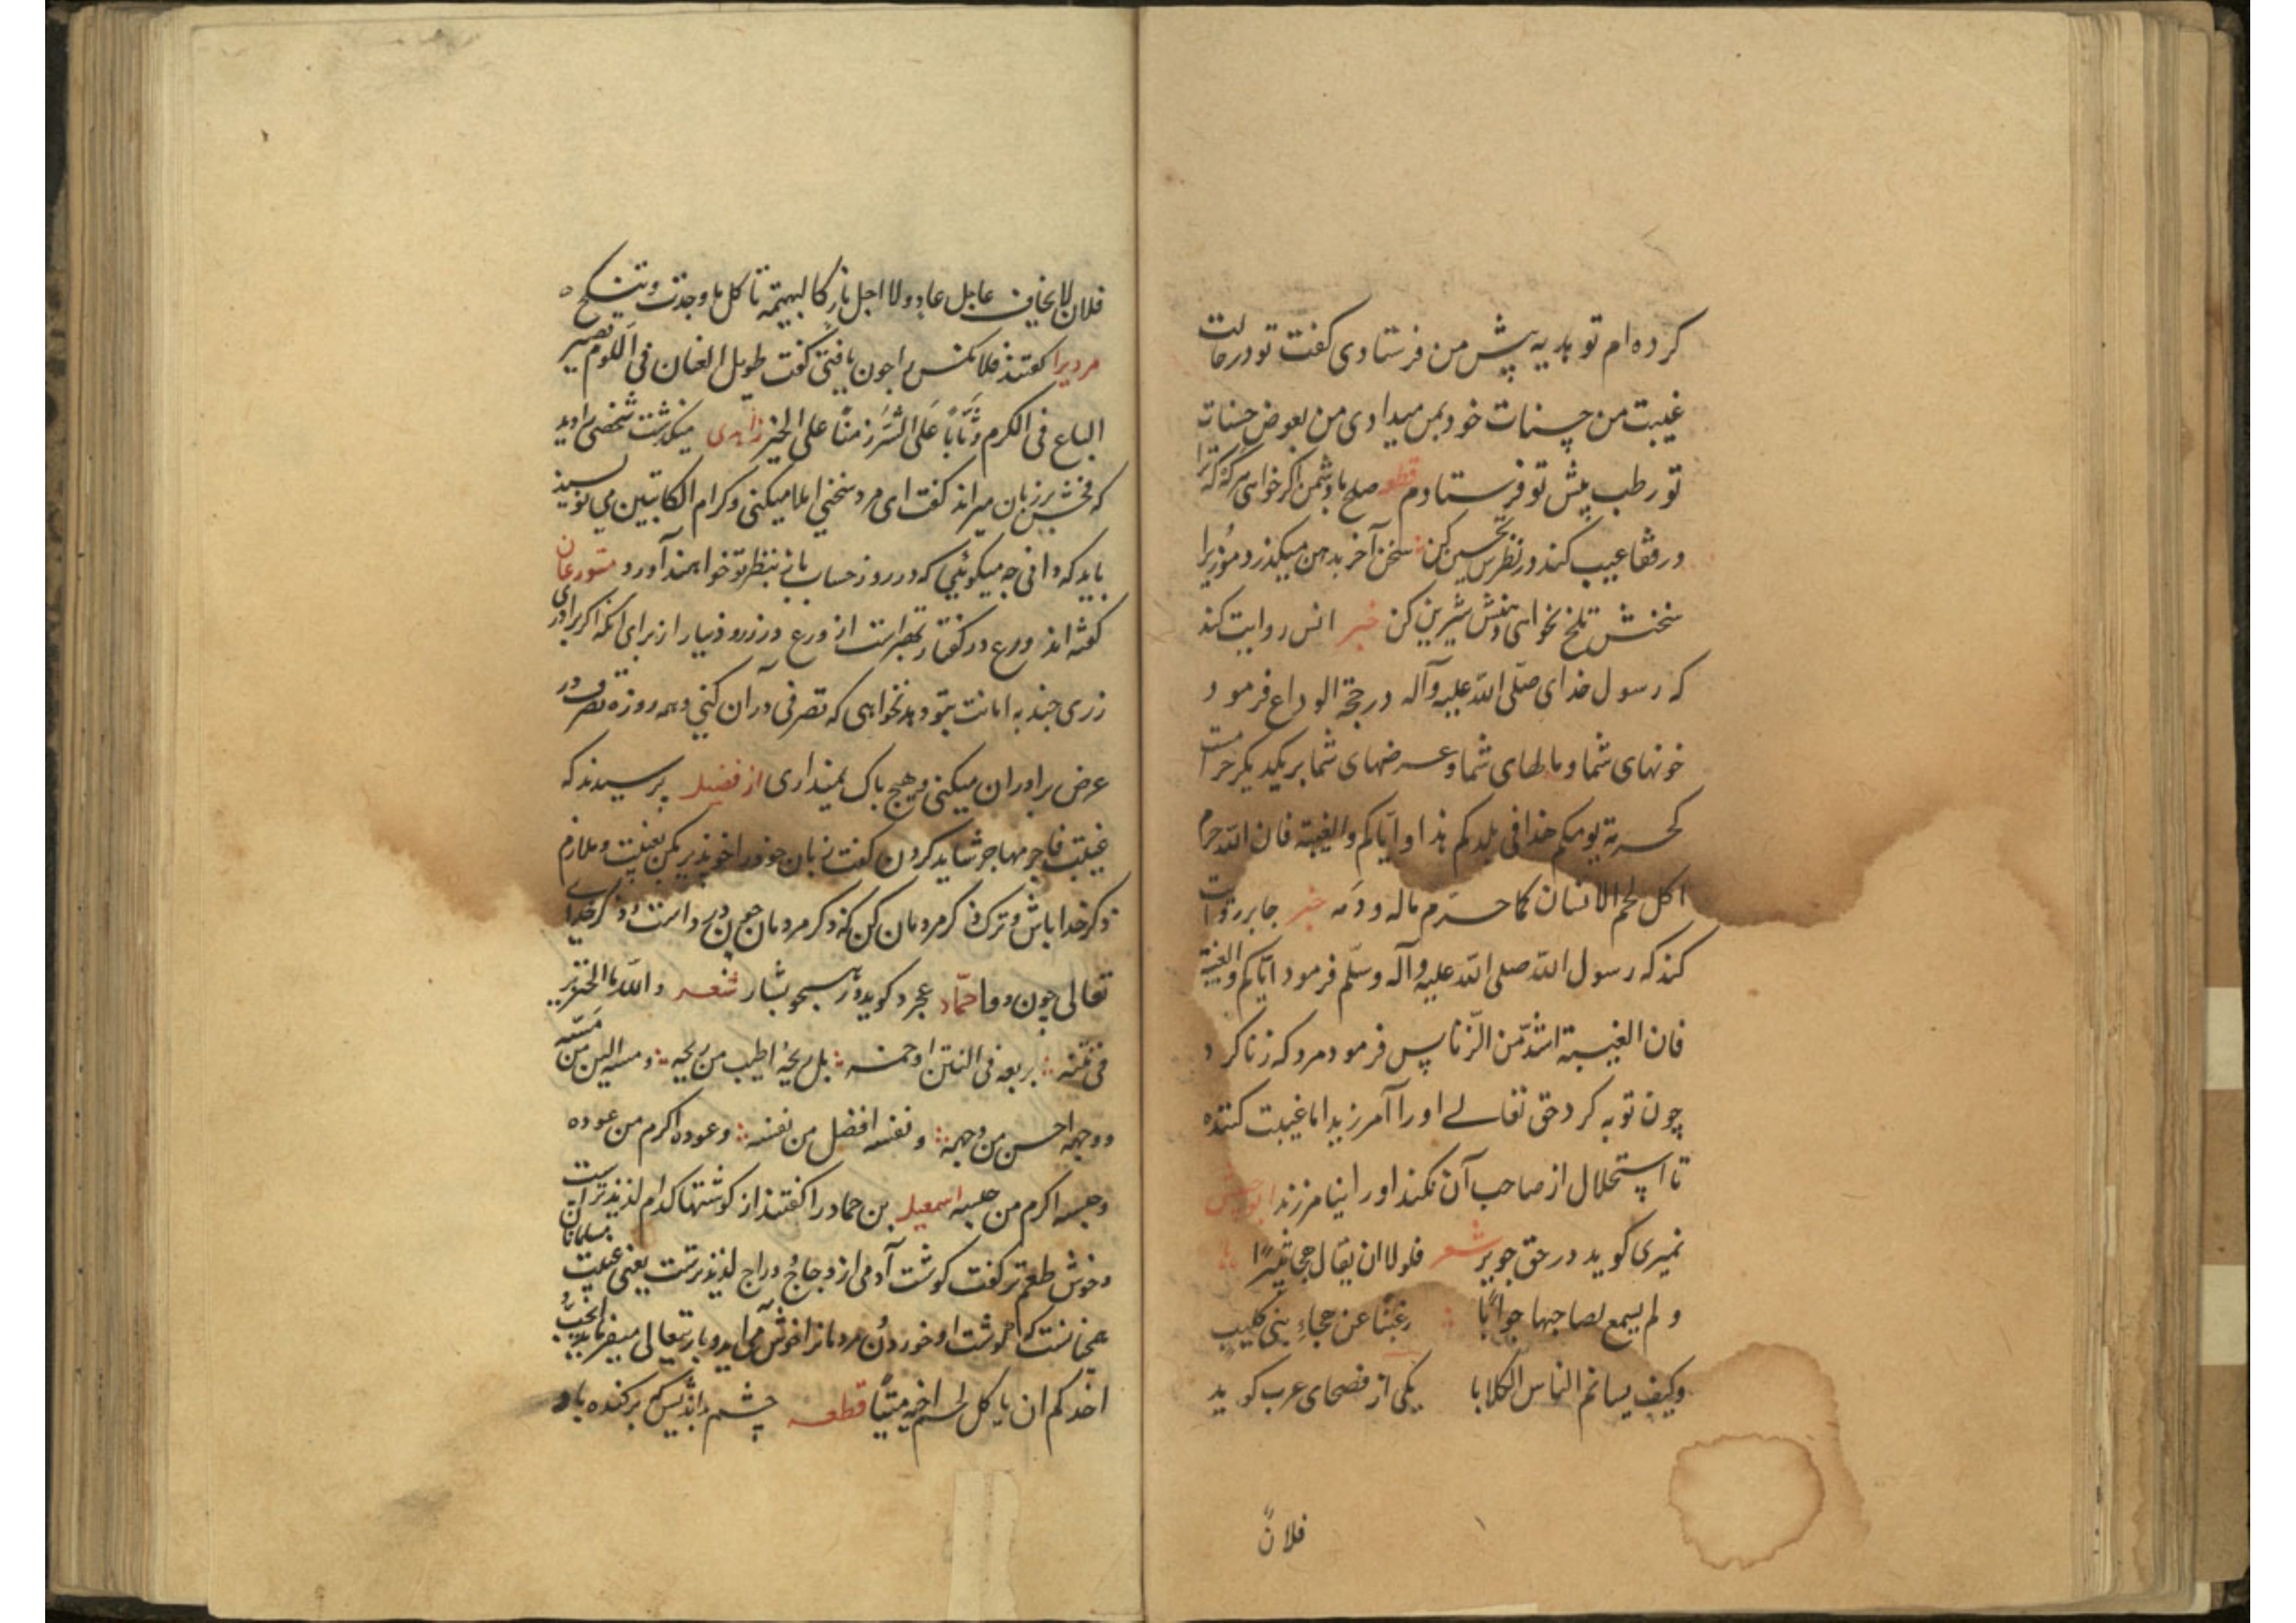 کرده ام تو هدیه پیش من فرستادی کفت تو در حالت
غیبت من حسنات خود بمن میدادی من بعوض حسنات
تو رطب پیش تو فرستادم قطعه صلح با دشمن اکر خواهی هر که که ترا
در قفا عیب کند در نظرش تحسین کن سخن آخر بدهن میکذرد موذی را
سخنش تلخ نخواهی دهنش شیرین کن خبر انس روایت کند
که رسول خدای صلّی اللّه علیه وآله در حجّة الوداع فرمود
خونهای شما و مالهای شما و عرضهای شما بر یکدیکر حرامست
کحرمة یومکم هذا فی بلدکم هذا و ایّاکم والغیبة فان اللّه حرم
اکل لحم الانسان کما حرّم ماله و دمه خبر جابر روایت
کند که رسول اللّه صلی اللّه علیه وآله وسلّم فرمود ایّاکم والغیبة
فان الغیبة اشدّ من الزّنا پس فرمود مرد که زنا کرد
چون توبه کرد حق تعالے اورا آمرزید اما غیبت کننده
تا استحلال از صاحب آن نکند اورا نیامرزند ابو
نمیری کوید در حق جریر شعر فلولا ان یقال هجا نمیرًا
و لم یسمع لصاحبها جوابًا رغبنا عن هجاء بنی کلیب
وکیف یساتم الناس الکلابا یکی از فصحای عرب کوید
فلانٌ
فلان لا یخاف عاجل عار ولا اجل نار کالبهیمة تاکل ما وجدت وتنکح
مردیرا کفتند فلانکس را چون یافتی کفت طویل العنان فی اللوم قصیر
الباع فی الکرم وثّابًا علی الشّر زمنًا علی الخیر زاهدی میکذشت شخصی را دید
که فحش بر زبان میراند کفت ای مرد سخنی املا میکنی و کرام الکاتبین می نویسند
باید که دانی چه میکوئی که در روز حساب باز بنظر تو خواهند آورد متورعان
کفته اند ورع در کفتار بهتر است از ورع در زر و دینار از برای انکه اکر برادری
زری چند به امانت بتو دهد نخواهی که تصرفی در آن کنی و همه روزه تصرف در
عرض برادران میکنی و هیچ باک نمیداری از فضیل پرسیدند که
غیبت فاجر مهاجر شاید کردن کفت زبان خود را خو پذیر مکن بغیبت و ملازم
ذکر خدا باش و ترک ذکر مردمان کن که ذکر مردمان چون درد است و ذکر خدای
تعالی چون دوا حمّاد عجرد کوید در هجو بشار شعر واللّه ما الخنزیر
فی نتنه بربعه فی النتن او خمسه بل ریحه اطیب من ریحه و مسه الین من مسّه
و وجهه احسن من وجهه و نفسه افضل من نفسه وعوده اکرم من عوده
وجنسه اکرم من جنسه اسمعیل بن حماد را کفتند از کوشتها کدام لذیذتراست
وخوش طعم تر کفت کوشت آدمی از دجاج و دراج لذیذترست یعنی غیبت مسلمانان
چنانست که کوشت او خوردن مردمانرا خوش می آید و باریتعالی میفرماید ایحبّ
احدکم ان یاکل لحم اخیه میتًا قطعه چشم بداندیش برکنده باد